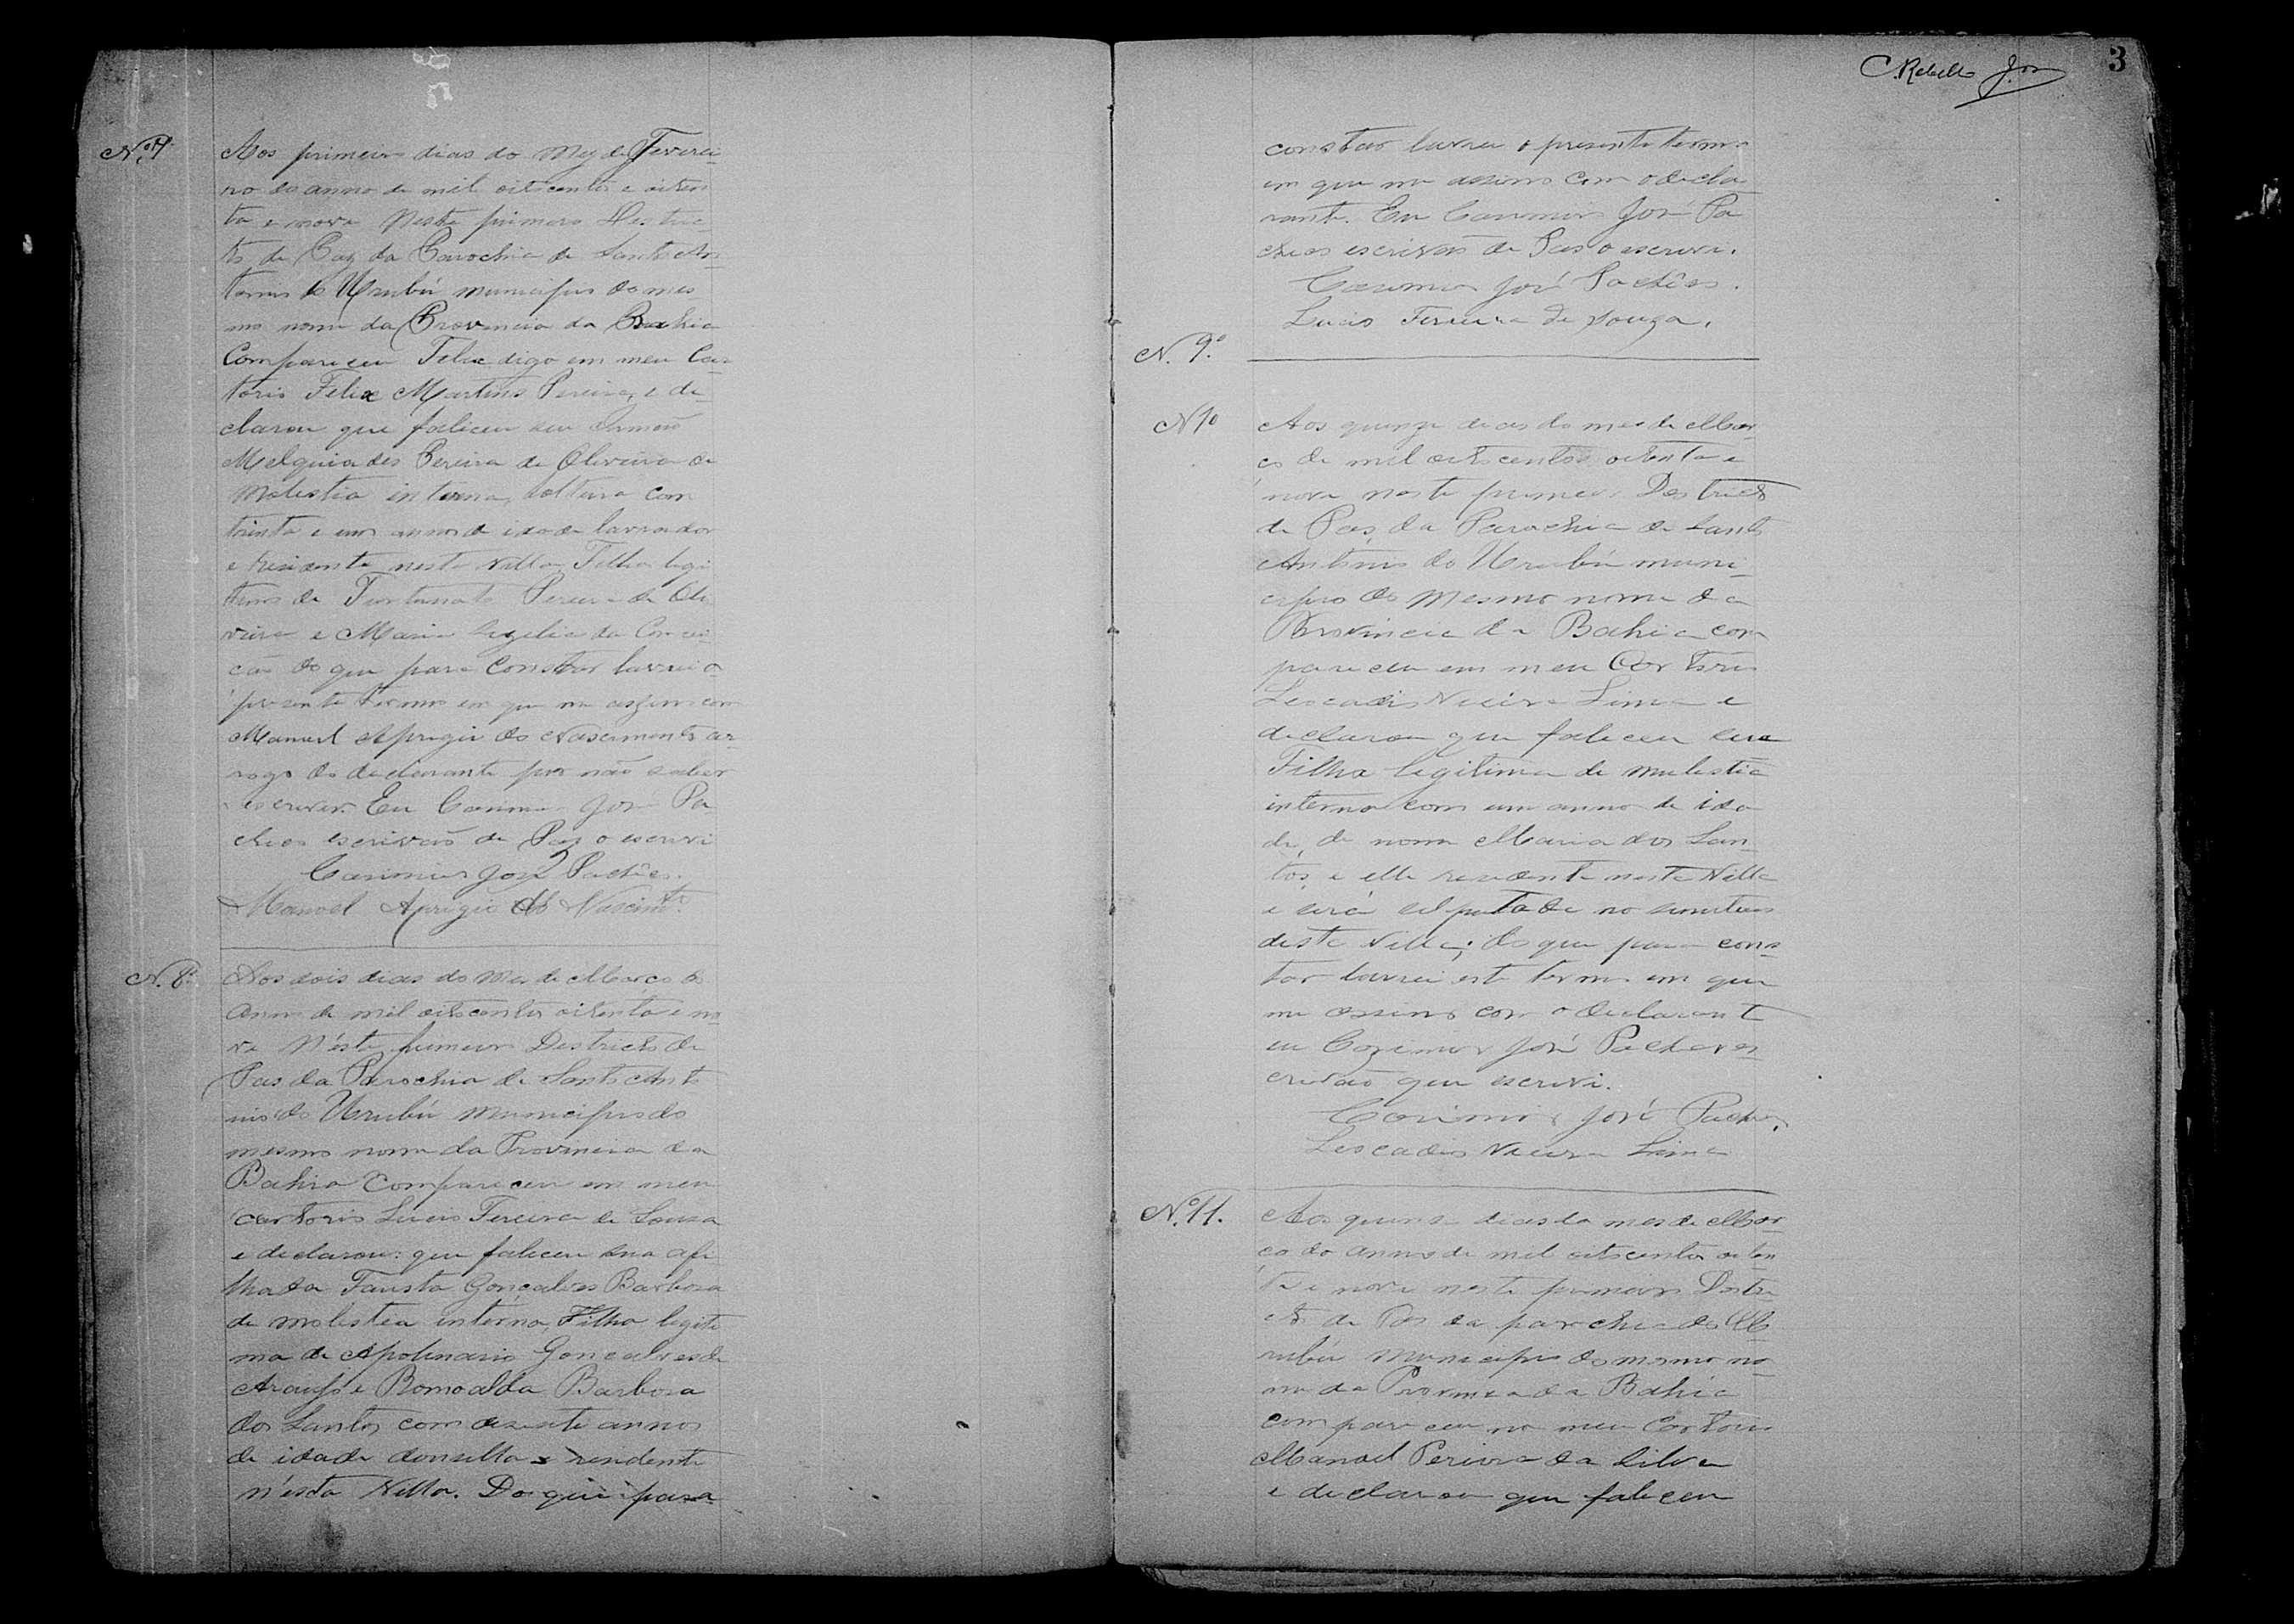 Nº 7
Aos primeiro dias do mez de Feverei-
ro do anno de mil oitocentos e oiten
ta e nove neste primeiro Destric-
to de Paz da Parochia de Santo An-
tonio do Urubú municipio do mes-
mo nome da Provincia da Bahia
Compareceu Felix digo em meu Car-
torio Felix Martins Pereira, e de-
clarou que faleceu seu Irmaõ
Melquiades Pereira de Oliveira de
molestia interna, solteiro com
trinta e um annos de idade lavrador
e residente nesta Villa, Filho legi
timo de Fortunato Pereira de Oli
veira e Maria da Concei
ção do que para constar lavrei o
presente termo em que me assino com
Manoel Aprigio do Nascimento ar-
rogo do declarante por não saber
escrever. Eu Casimiro José Pa-
checo escrivaõ de Paz o escrevi
Casimiro José Pachêco.
Manoel Aprigio do Nascimto.
N. 8º
Aos dois dias do mes de Março do
anno de mil oitocentos oitenta e no-
ve n'éste primeiro Destricto de
Pas da Parochia de Santo Anto
nio do Urubú municipio do
mesmo nome da Provincia da
Bahia compareceu em meu
cartorio Lucio Fereira de Souza
e declarou: que faleceu sua afi-
lhada Fausta Gonçalves Barbosa
de molestia interna, Filha legiti
ma de Apolinario Gonçalves de
Araujo e Romoalda Barbosa
dos Santos com desesete annos
de idade donsella e residente
n'ésta Villa. Do que para
C. Rebello Jor
3
constar lavrei o presente termo
em que me assino com o decla-
rante. Eu Casimiro José Pa
checo escrivaõ de Pas o escrevi.
Casimiro José Pachêco.
Lucio Fereira de Souza.
N. 9º
N 10
Aos quinze dias do mes de Mar-
ço de mil oitocentos oitenta e
nove neste primeiro Destricto
de Pas, da Parochia de Santo
Antonio do Urubú muni-
cipio do mesmo nome da
Provincia da Bahia com
pareceu em meu Cartorio
Leocadio Vieira Lima e
declarou que faleceu sua
Filha legitima de mulestia
interna com um anno de ida
de, de nome Maria dos San-
tos, e elle residente nesta Villa
e será sepultada no semiterio
desta Villa; do que para cons-
tar lavrei este termo em que
me assino com o declarante
eu Cazimiro José Pacheco es-
crivaõ que escrevi.
Casimiro José Pacheco,
Leocadio Vieira Lima
Nº 11.
Aos quinse dias do mes de Mar
ço do anno de mil oitocentos oiten
ta e nove neste primeiro Distri-
cto de Pas da parochia do U-
rubú municipio do mesmo no-
me da Provincia da Bahia
compareceu no meu cartorio
Manoel Pereira da Silva
e declarou que faleceu